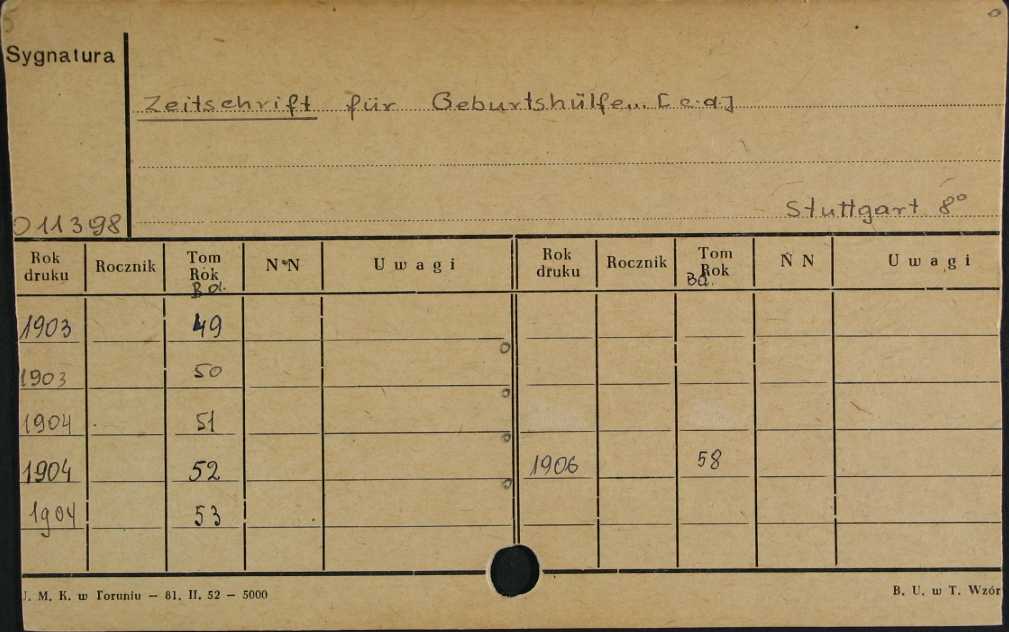 Sygnatura
Zeitschrift für Geburtshülfe... [c.d.]
Stuttgart 8°
011398
Rok druku Rocznik Tom Rok Bd. N N U w a g i Rok druku Rocznik Tom Rok Bd. N N U w a g i
1903 49
1903 50
1904 51
1904 52 1906 58
1904 53
U. M. K. w Toruniu — 81. II. 52 — 5000 B. U. w T. Wzór